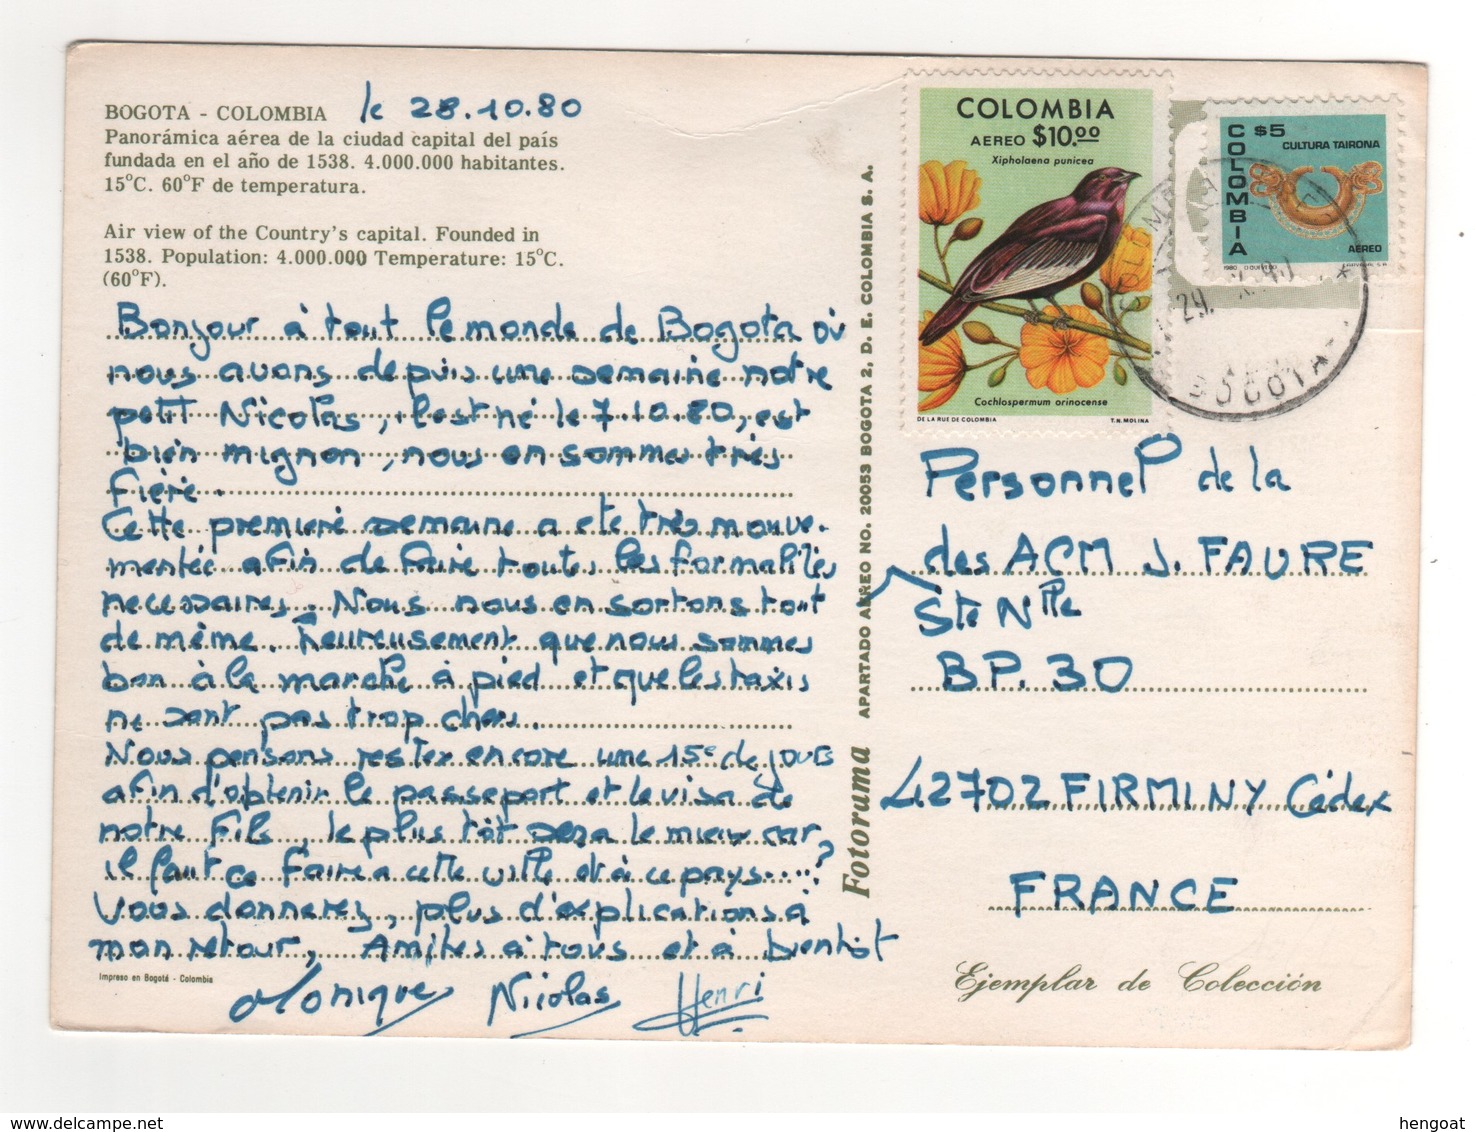 BOGOTA - COLOMBIA le 28.10.80
Panorámica aérea de la ciudad capital del país
fundada en el año de 1538. 4.000.000 habitantes.
15°C. 60°F de temperatura.
Air view of the Country's capital. Founded in
1538. Population: 4.000.000 Temperature: 15°C.
(60°F).
Bonjour à tout le monde de Bogota où
nous avons depuis une semaine notre
petit Nicolas, il est né le 7.10.80, est
bien mignon, nous en sommes très
fière.
Cette première semaine a été très mouve-
mentée afin de faire toutes les formalités
necessaires. Nous nous en sortons tout
de même. heureusement que nous sommes
bon à la marche à pied et que les taxis
ne sont pas trop chers.
Nous pensons rester encore une 15e de jours
afin d'obtenir le passeport et le visa de
notre fils, le plus tôt sera le mieux car
il faut ce faire a cette ville et à ce pays.....?
Vous donnerez, plus d'explications à
mon retour, Amitiés à tous et à bientôt
Monique Nicolas Henri
Impreso en Bogotá - Colombia
Fotorama APARTADO AEREO NO. 20053 BOGOTA 2, D. E. COLOMBIA S. A.
COLOMBIA
AEREO $10.00
Xipholaena punicea
Cochlospermum orinocense
DE LA RUE DE COLOMBIA T.N. MOLINA
COLOMBIA
$5
CULTURA TAIRONA
AEREO
1980
29.
BOGOTA
Personnel de la
des ACM J. FAURE
Ste Nlle
BP. 30
42702 FIRMINY Cédex
FRANCE
Ejemplar de Colección
hengoat